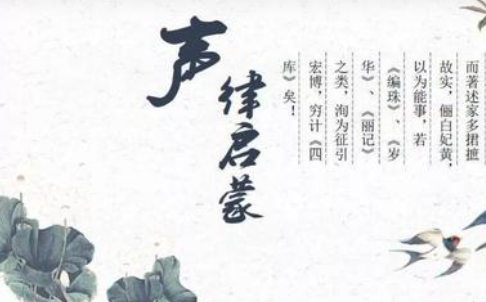 而著述家多捃摭
故实，俪白妃黄，
以为能事，若
《编珠》、《岁
华》、《丽记》
之类，洵为征引
宏博，穷计《四
库》矣！
声律启蒙